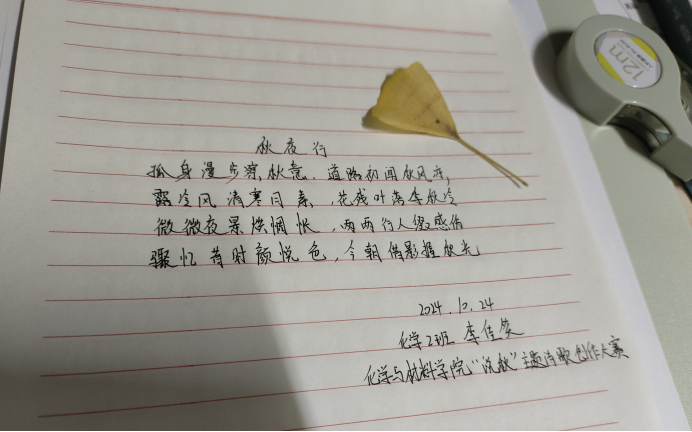 秋夜行
孤身漫步深秋意，道路初闻秋风声，
露冷风清寒月素，花残叶落李秋冷
微微夜景惹惆怅，两两行人缀感伤
骤忆昔时颜悦色，今朝借影握秋光
2024.10.24
化学2班 李佳笑
化学与材料学院“悦秋”主题诗歌创作大赛
12m